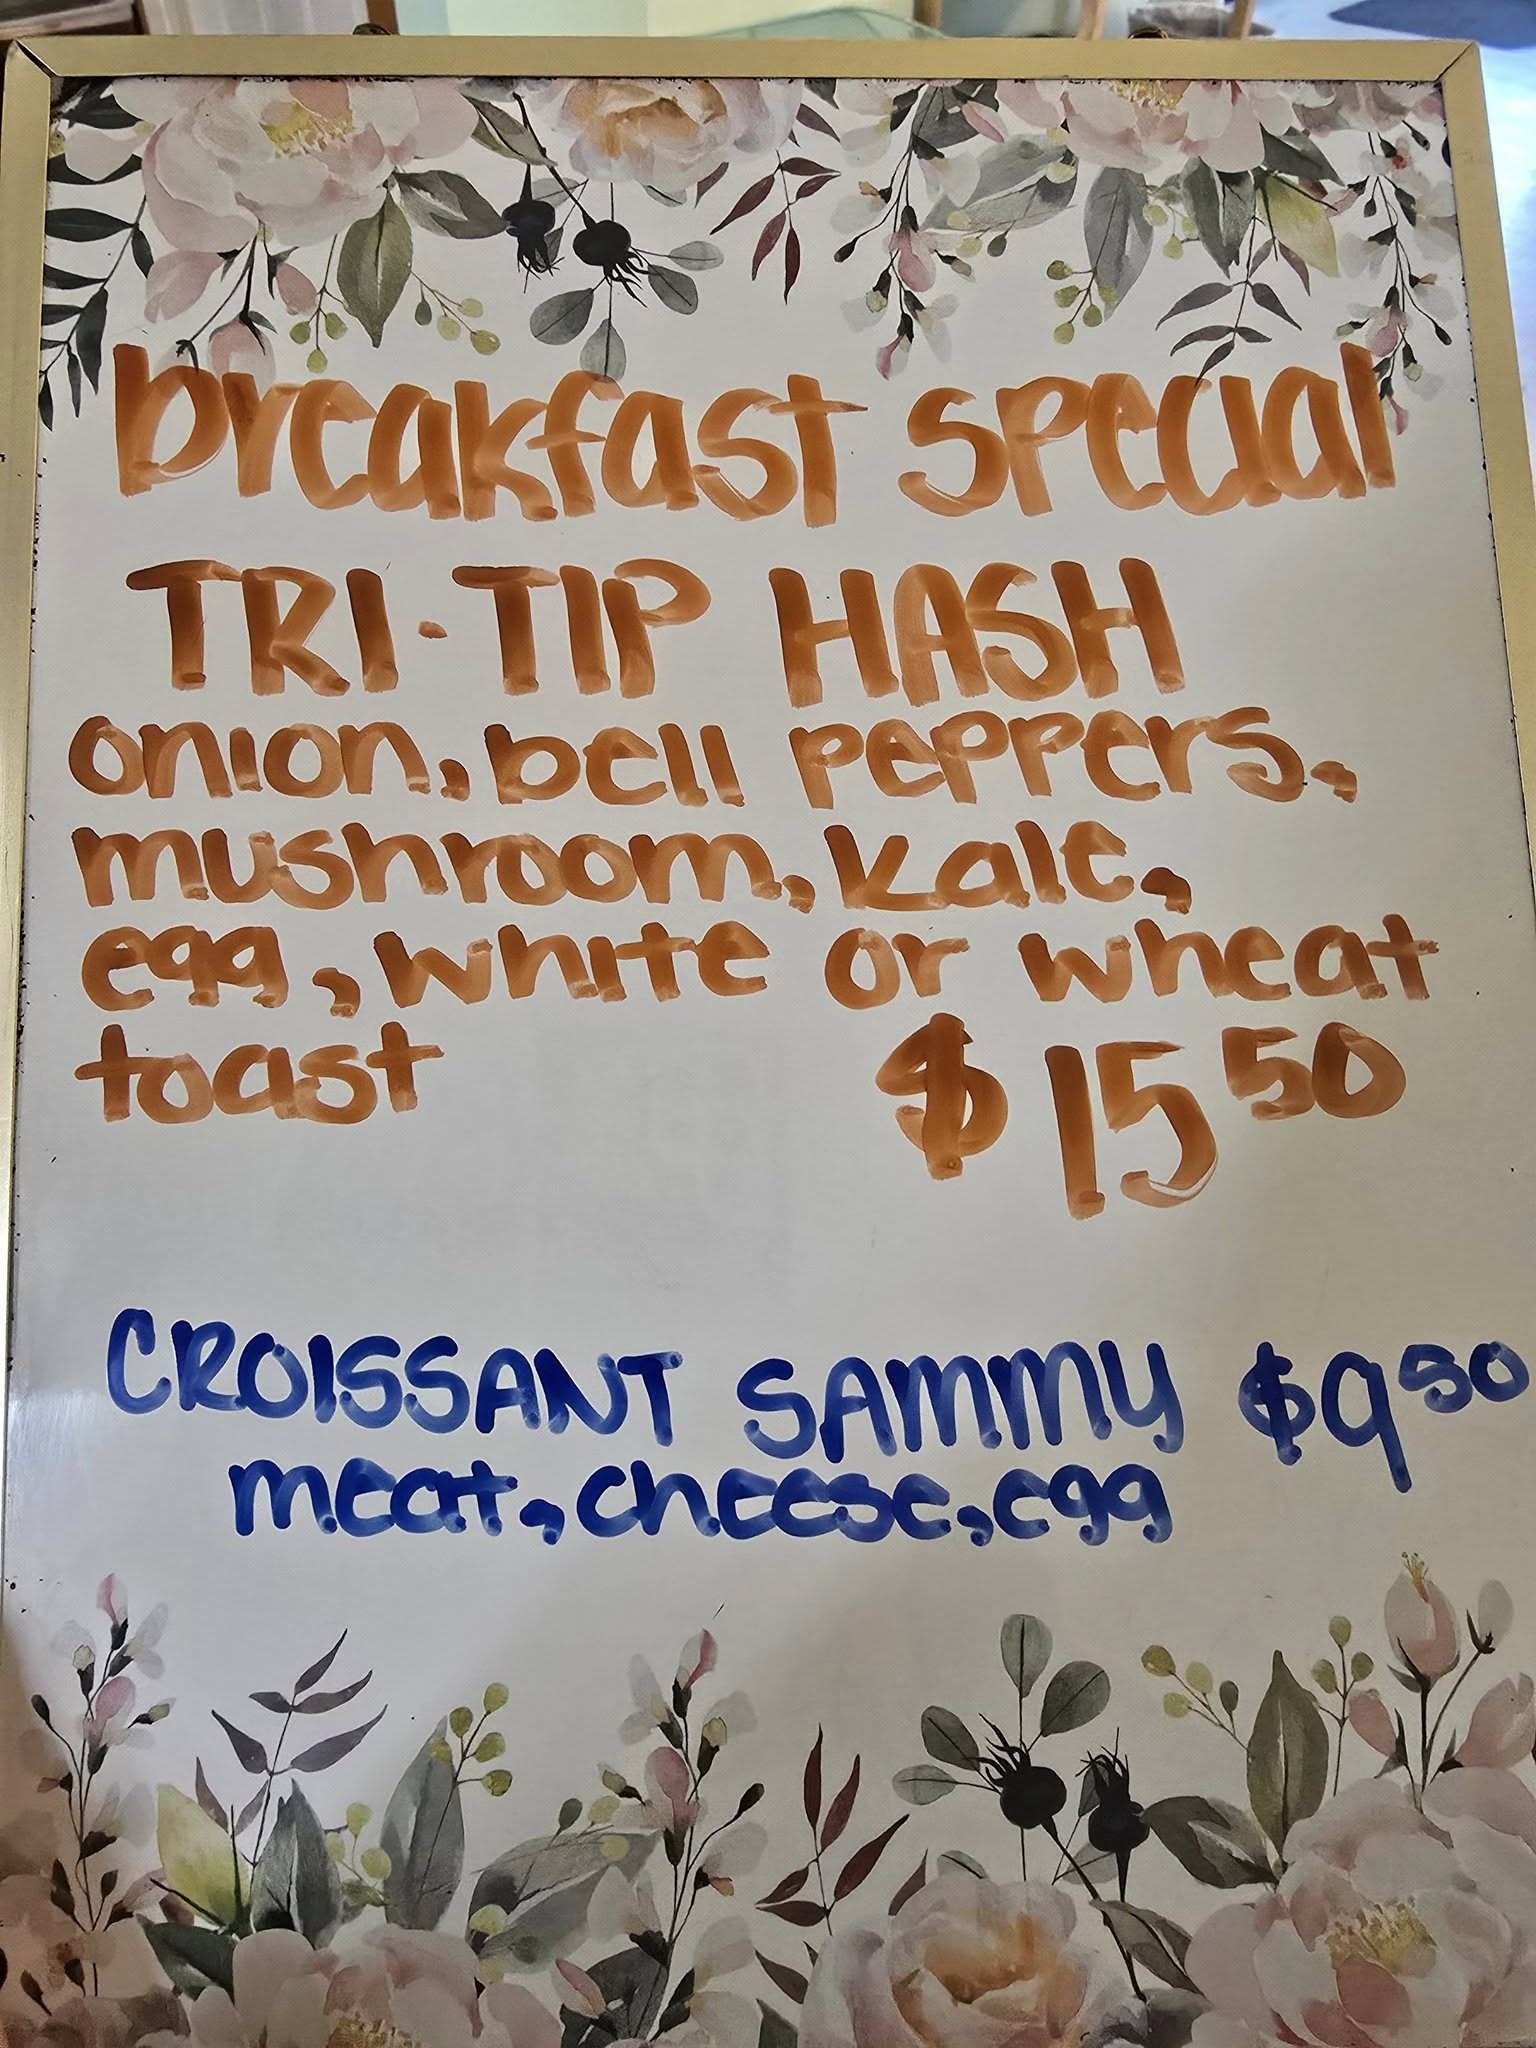 breakfast special
TRI-TIP HASH
onion, bell peppers,
mushroom, kale,
egg, white or wheat
toast $15 50
CROISSANT SAMMY $9 50
meat, cheese, egg